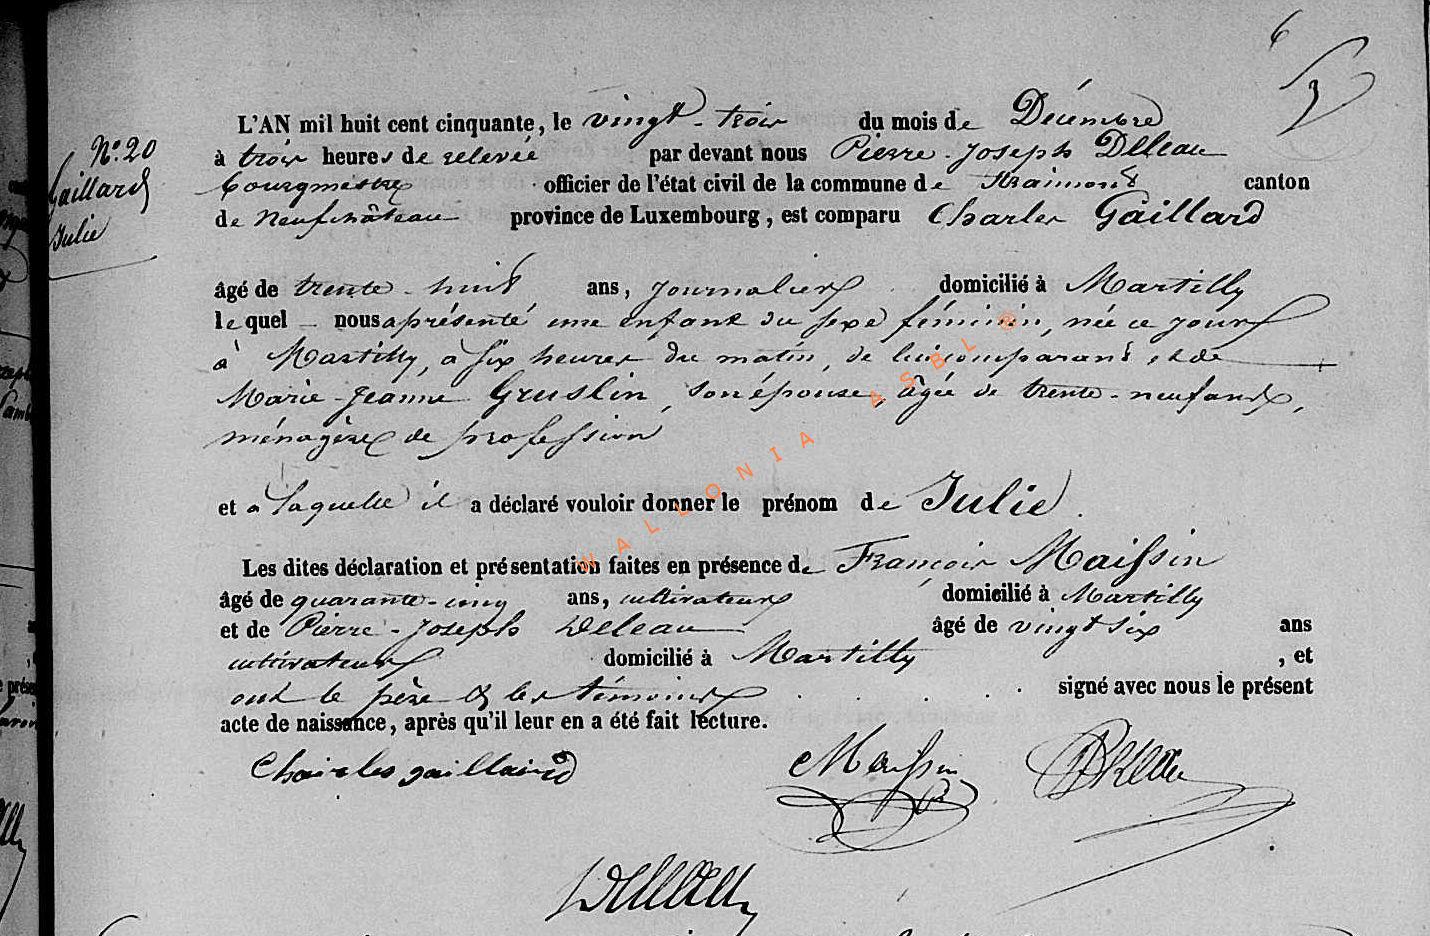 6
N° 20
Gaillard
Julie
L'AN mil huit cent cinquante, le vingt-trois du mois de Décembre
à trois heures de relevée par devant nous Pierre-Joseph Deleau
bourgmestre officier de l'état civil de la commune de Straimont canton
de Neufchâteau province de Luxembourg, est comparu Charles Gaillard
âgé de trente-huit ans, journalier domicilié à Martilly
lequel nous a présenté une enfant du sexe féminin, née ce jour
à Martilly, à six heures du matin, de lui comparant, et de
Marie-Jeanne Gruslin, son épouse, âgée de trente-neuf ans,
ménagère de profession
et à laquelle il a déclaré vouloir donner le prénom de Julie.
Les dites déclaration et présentation faites en présence de François Maissin
âgé de quarante-cinq ans, cultivateur domicilié à Martilly
et de Pierre-Joseph Deleau âgé de vingt six ans
cultivateur domicilié à Martilly, et
ont le père & les témoins signé avec nous le présent
acte de naissance, après qu'il leur en a été fait lecture.
Chairles gaillaird
Maissin
Deleau
WALLONIA ASBL ®